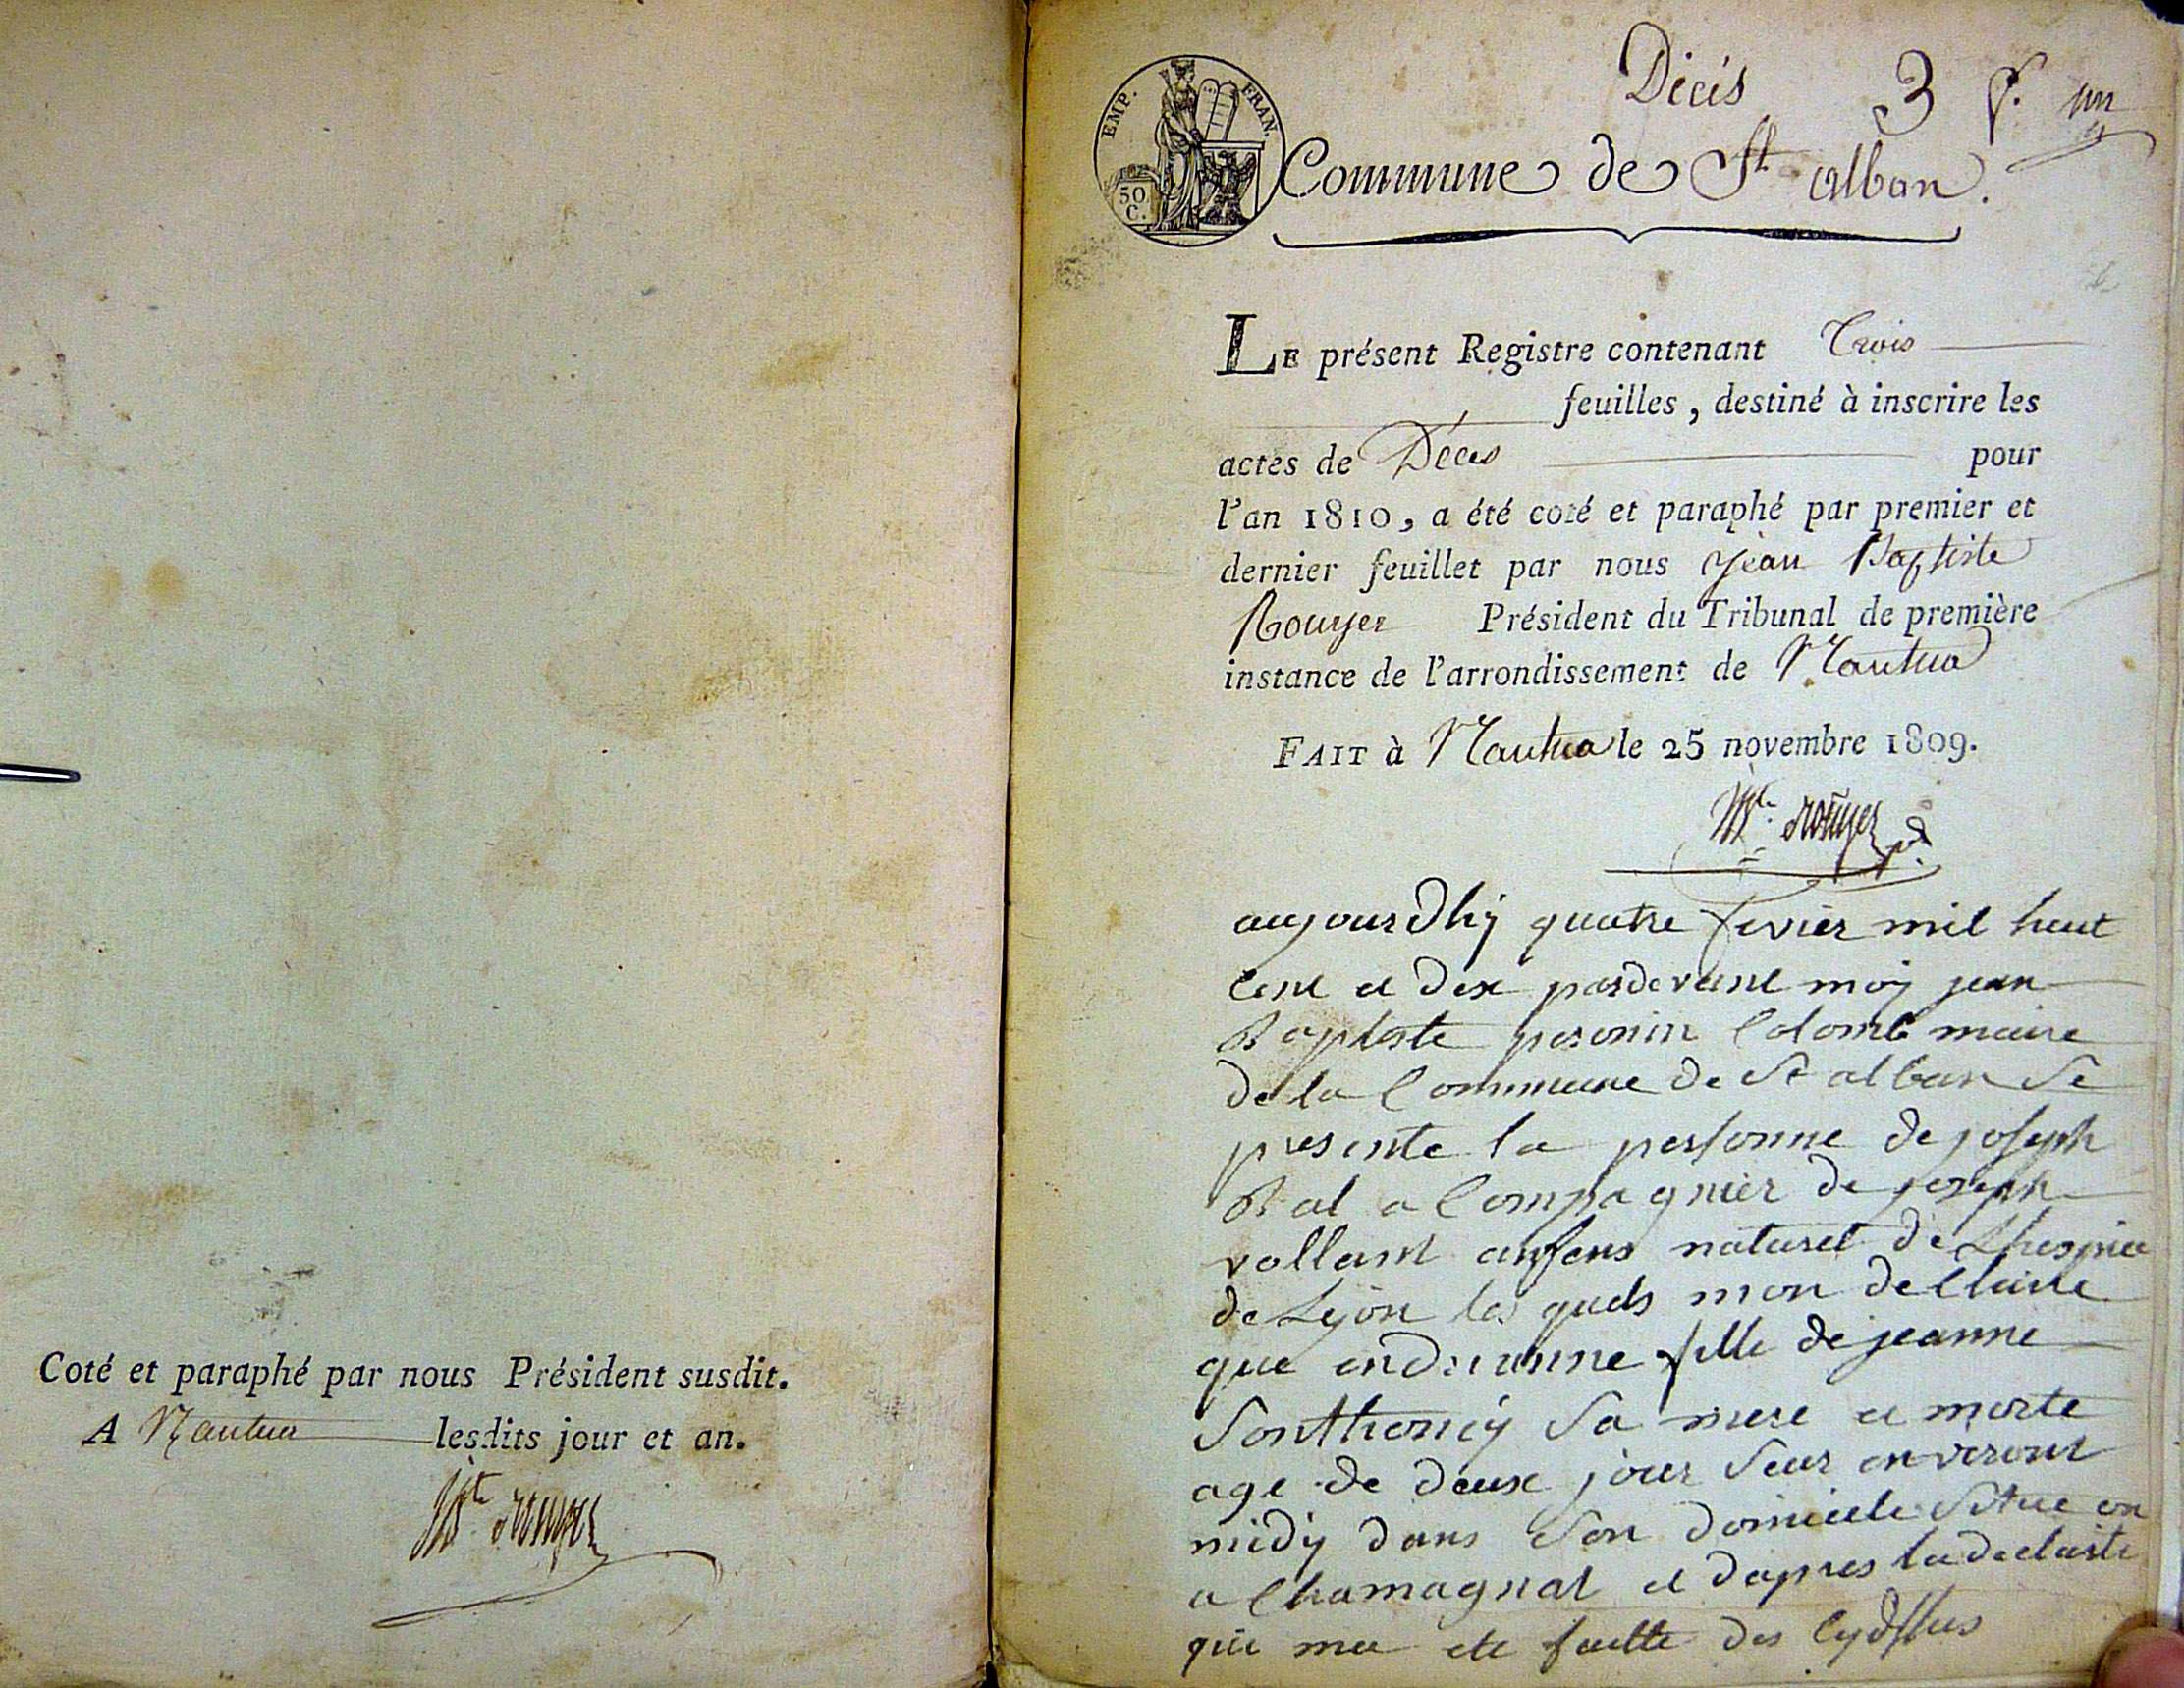 Coté et paraphé par nous Président susdit.
A Nantua lesdits jour et an.
Bte rouyer
EMP. FRAN.
50
C.
Décis 3 f. un
Commune de St alban.
LE présent Registre contenant Trois
feuilles, destiné à inscrire les
actes de Décès pour
l'an 1810, a été coté et paraphé par premier et
dernier feuillet par nous Jean Baptiste
Rouyer Président du Tribunal de première
instance de l'arrondissement de Nantua
FAIT à Nantua le 25 novembre 1809.
Bte rouyer pd.
aujourdhÿ quatre fevrier mil huut
cent et dix pardevant moÿ jean
Baptiste peronin Colomb maire
de la Commune de St alban Se
presente la personne de joseph
Bal a Compagnier de joseph
vollant anfens naturel de
de Lyon les quels mon dellaire
que andrianne fille de jeanne
Sonthoney Sa mere et morte
age de deux jour Seur anviront
midÿ dans Son domicile Situe en
a Chamagnat et dapres la declaste
qui ma ete faitte des Cydssus